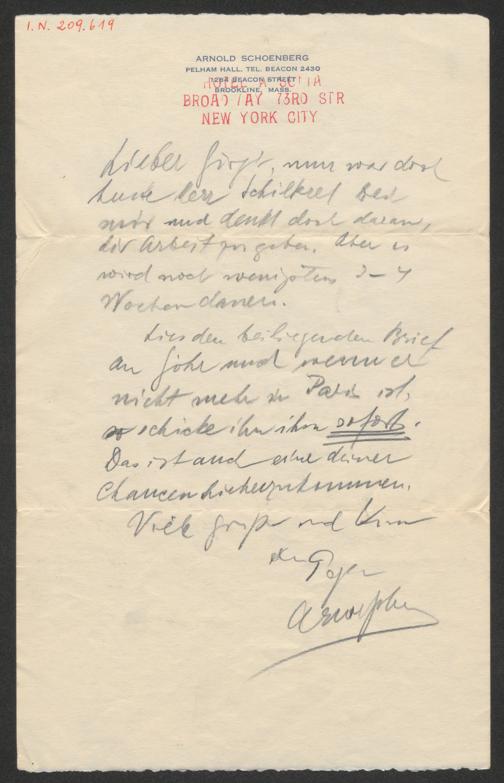 I.N. 209.619
ARNOLD SCHOENBERG
PELHAM HALL, TEL. BEACON 2430
1284 BEACON STREET
BROOKLINE, MASS.
HOTEL A SONIA
BROADWAY 73RD STR
NEW YORK CITY
Lieber Görgi, nun war doch
heute Herr Schildkret bei
mir und denkt doch daran,
dir Arbeit zu geben. Aber es
wird noch wenigstens 3–4
Wochen dauern.
Lies den beiliegenden Brief
an und wenn er
nicht mehr in Paris ist,
so schicke ihn ihm sofort.
Das ist auch eine deiner
Chancen hieherzukommen.
Viele Grüße und
Arnold Schönberg